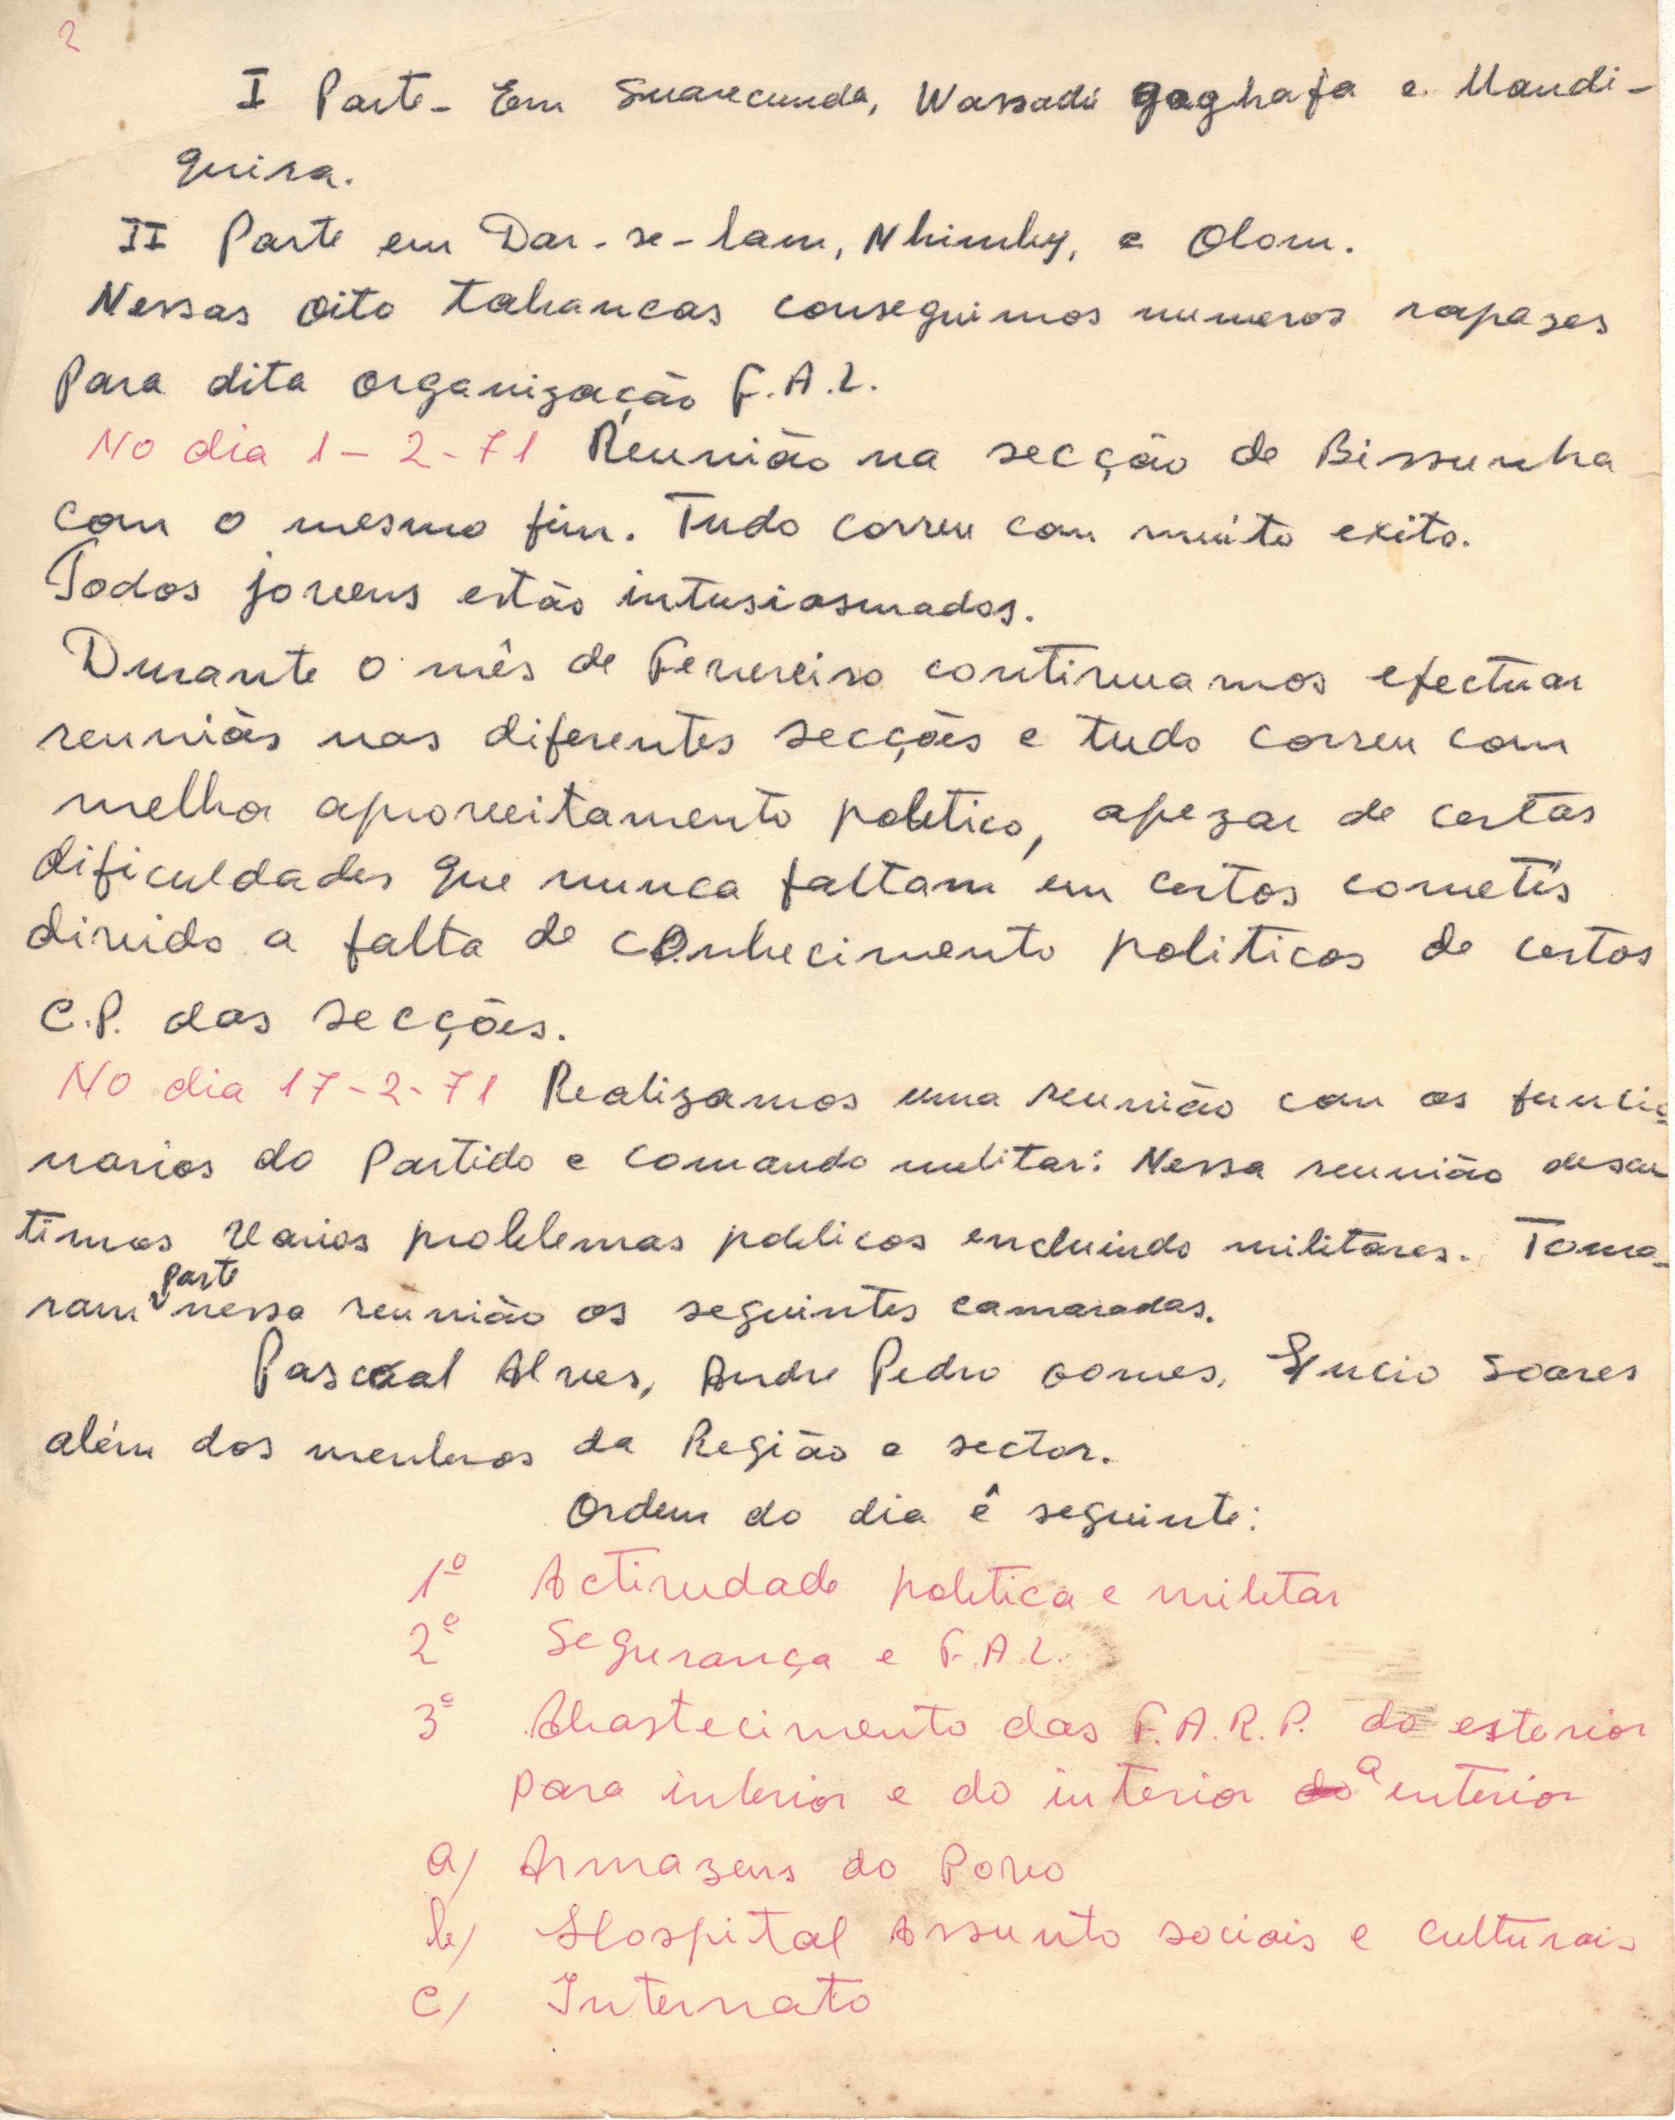 2
I Parte - Em Suarecunda, Wassadi gaghafa e Mandi-
quira.
II Parte em Dar-se-lam, Nhimby, e Olom.
Nessas oito tabancas conseguimos numeros rapazes
Para dita organização F.A.L.
No dia 1-2-71 Reunião na secção de Bissunha
com o mesmo fim. Tudo correu com muito exito.
Todos jovens estão intusiasmados.
Durante o mês de Fevereiro continuamos efectuar
reuniãs nas diferentes secções e tudo correu com
melhor aproveitamento politico, apezar de certas
dificuldades que nunca faltam em certos cometés
divido a falta de conhecimento politicos de certos
C.P. das secções.
No dia 17-2-71 Realizamos uma reunião com os funcio
narios do Partido e comando militar: Nessa reunião descu
timos varios problemas politicos encluindo militares. Toma-
ram parte nessa reunião os seguintes camaradas.
Pascoal Alves, Andre Pedro Gomes, Lucio Soares
além dos membros da Região e sector.
Ordem do dia ê seguinte:
1º Actividade politica e militar
2º Segurança e F.A.L.
3º Abastecimento das F.A.R.P. do esterior
para interior e do interior a enterior
a/ Armazens do Povo
b/ Hospital Assunto sociais e culturais
c/ Internato